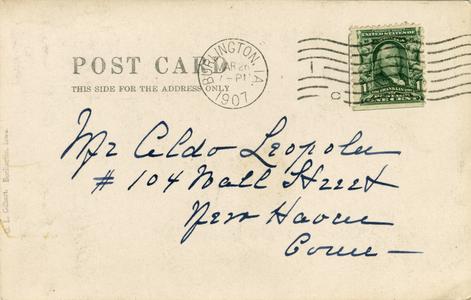 POST CARD
THIS SIDE FOR THE ADDRESS ONLY
BURLINGTON, IA.
MAR 26
7-PM
1907
UNITED STATES OF
1
ONE CENT
Mr Aldo Leopold
# 104 Wall Street
New Haven
Conn —